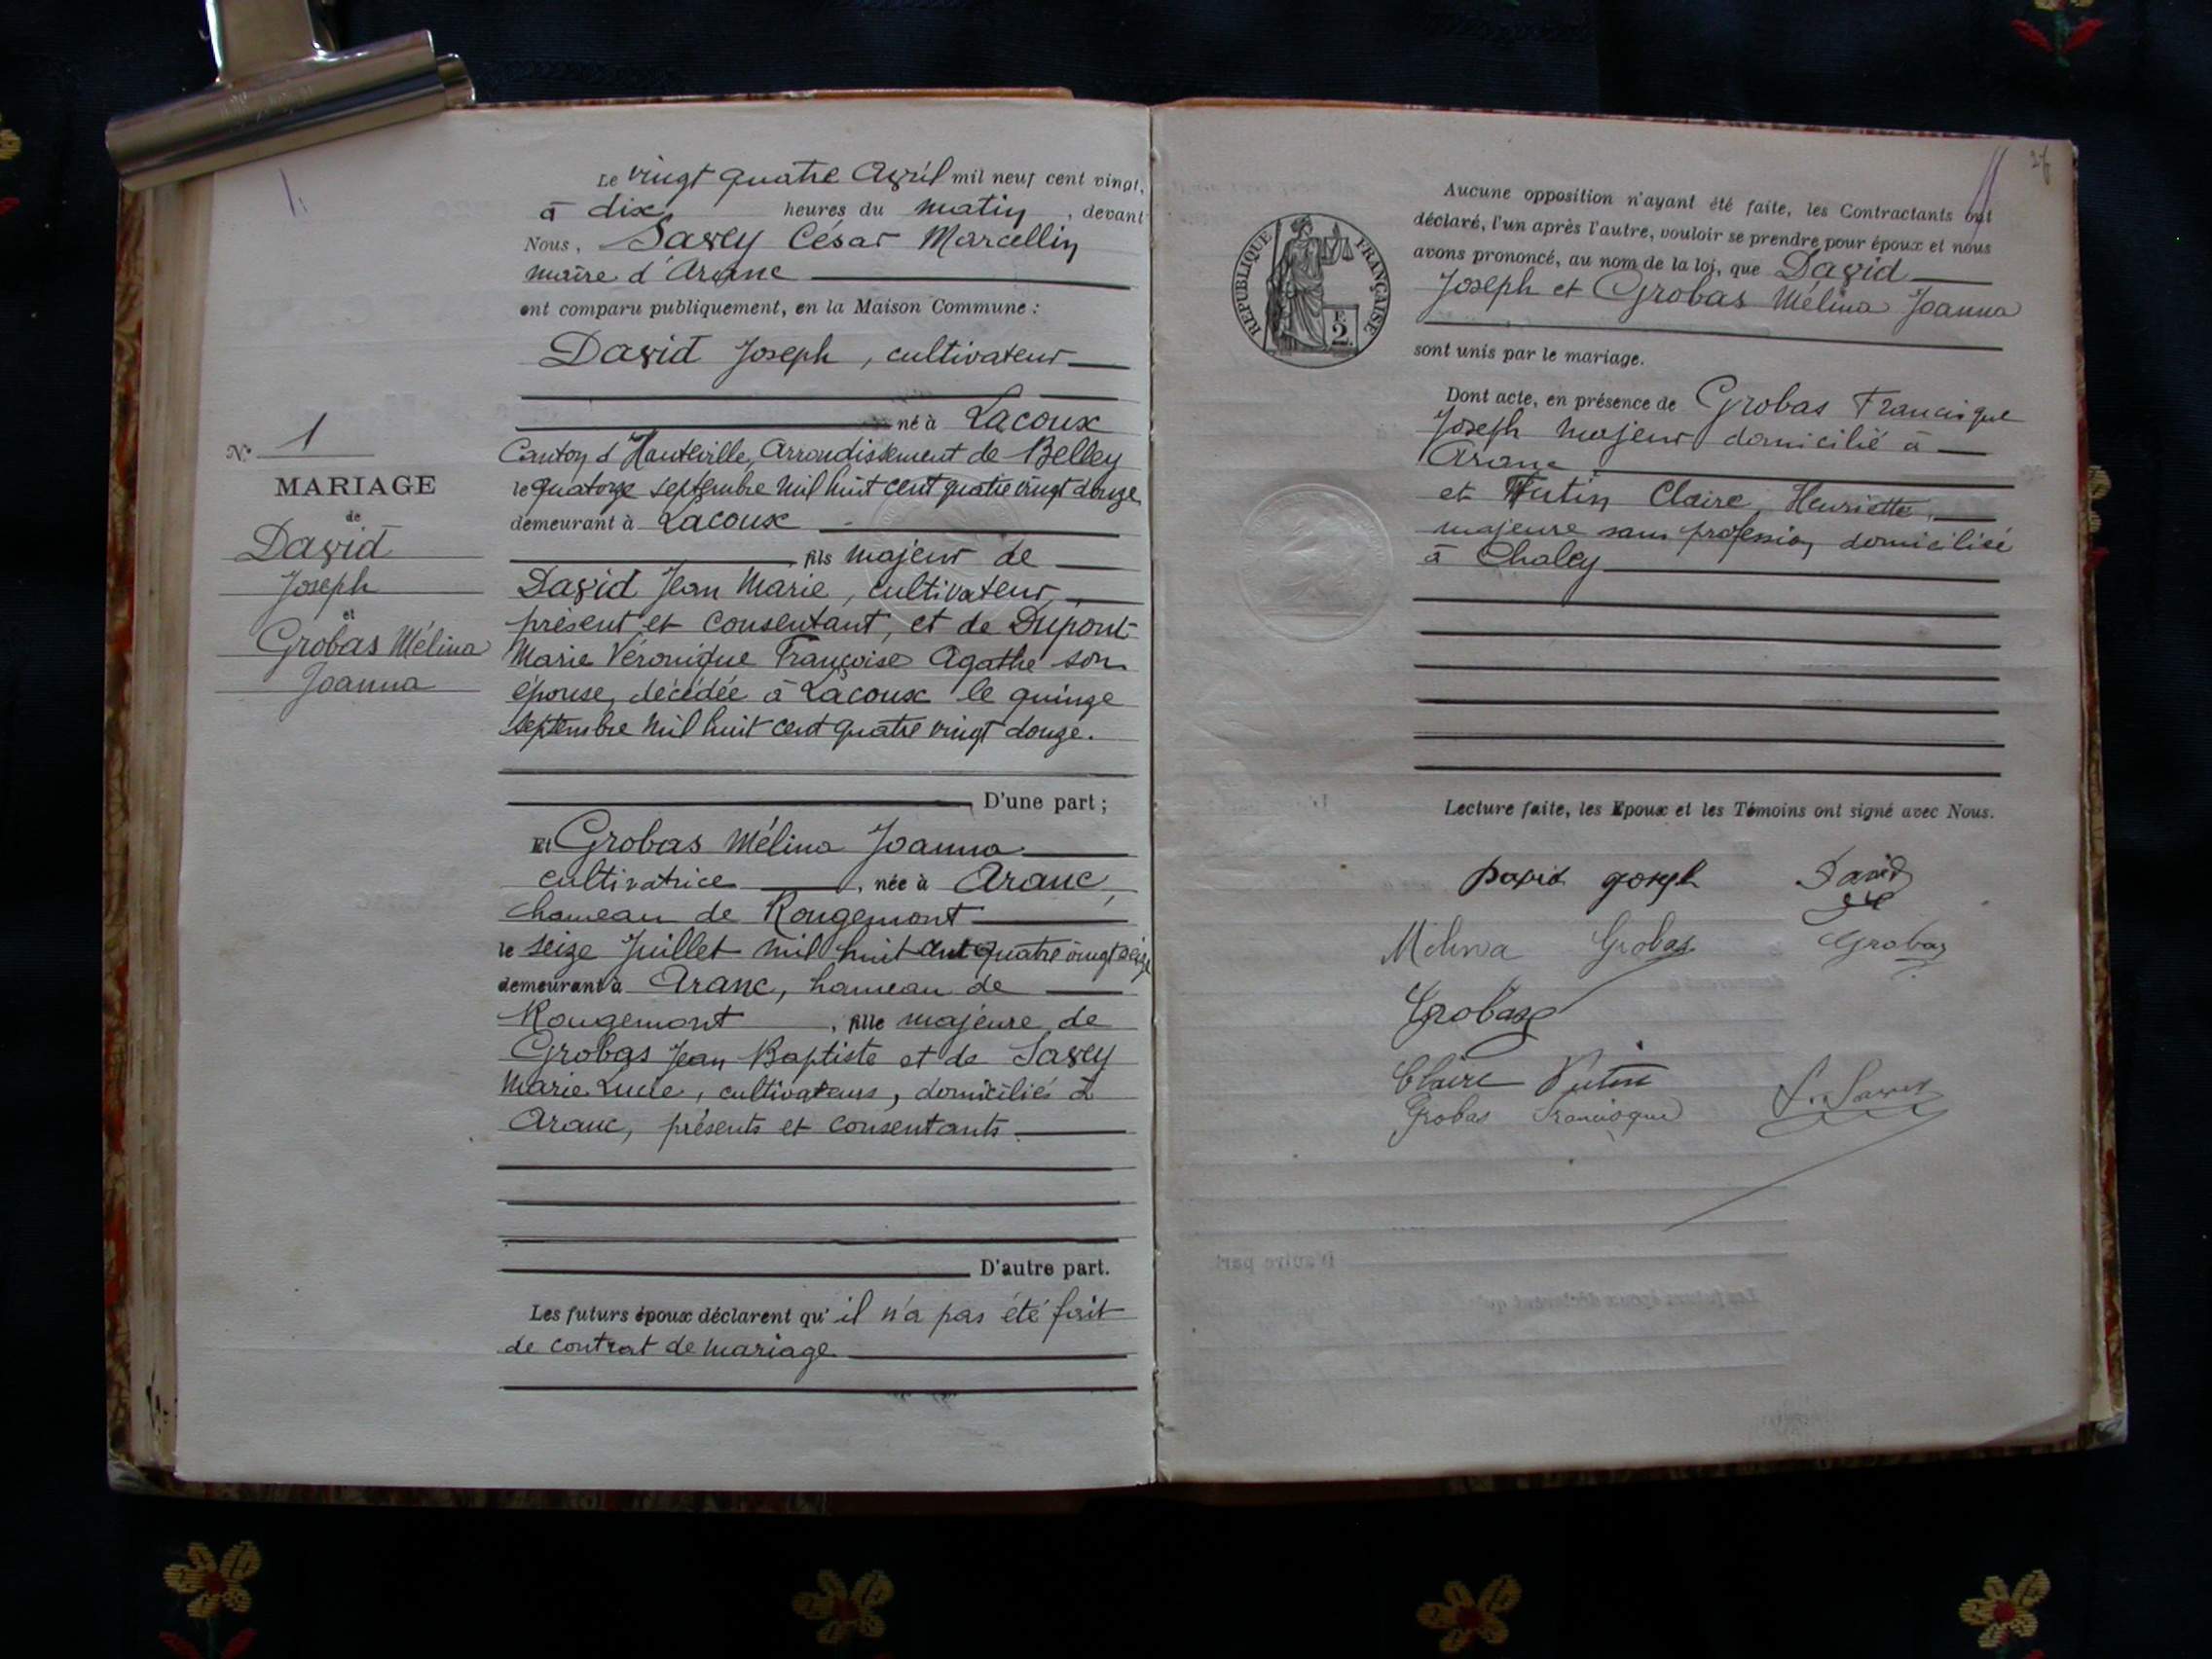 Le vingt quatre Avril mil neuf cent vingt,
à dix heures du matin, devant
Nous, Savey César Marcellin
maire d'Aranc
ont comparu publiquement, en la Maison Commune :
David Joseph, cultivateur
né à Lacoux
Canton d'Hauteville, Arrondissement de Belley
le quatorze septembre mil huit cent quatre vingt douze
demeurant à Lacoux
fils majeur de
David Jean Marie, cultivateur,
présent et consentant, et de Dupont
Marie Véronique Françoise Agathe son
épouse, décédée à Lacoux le quinze
septembre mil huit cent quatre vingt douze.
D'une part ;
N° 1
MARIAGE
de
David
Joseph
et
Grobas Mélina
Joanna
Et Grobas Mélina Joanna
cultivatrice, née à Aranc,
hameau de Rougemont
le seize Juillet mil huit cent quatre vingt seize
demeurant à Aranc, hameau de
Rougemont, fille majeure de
Grobas Jean Baptiste et de Savey
Marie Lucie, cultivateurs, domiciliés à
Aranc, présents et consentants.
D'autre part.
Les futurs époux déclarent qu'il n'a pas été fait
de contrat de mariage
26
REPUBLIQUE FRANÇAISE
F.
2.
Aucune opposition n'ayant été faite, les Contractants ont
déclaré, l'un après l'autre, vouloir se prendre pour époux et nous
avons prononcé, au nom de la loi, que David
Joseph et Grobas Mélina Joanna
sont unis par le mariage.
Dont acte, en présence de Grobas Francisque
Joseph majeur domicilié à
Aranc
et Tutin Claire, Henriette,
majeure sans profession, domiciliée
à Chaley
Lecture faite, les Epoux et les Témoins ont signé avec Nous.
David Joseph David
Mélina Grobas Grobas
Grobas
Claire Tutin
Grobas Francisque Savey